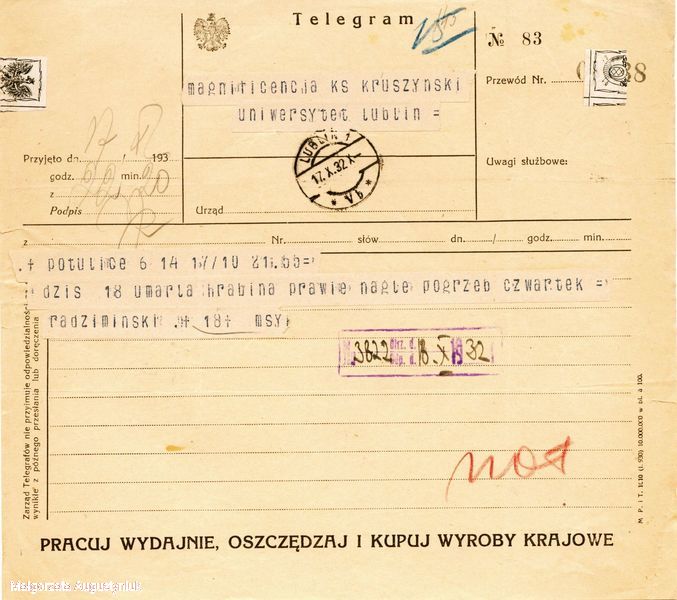 Telegram
№ 83
Przewód Nr.
magnificencja ks kruszynski
uniwersytet lublin =
LUBLIN 1
17.X.32.X-
* Vb *
Przyjęto dn. 17 / X 193
godz. min. 20
z
Podpis
Urząd
Uwagi służbowe:
z Nr. słów dn. / godz. min.
.+ potulice 6 14 17/10 21.55=
dzis 18 umarla hrabina prawie nagle pogrzeb czwartek =
radziminski .+ 18+ msy
3822 18. X 1932
not
Zarząd Telegrafów nie przyjmuje odpowiedzialności
wynikłe z późnego przesłania lub doręczenia
M. P. i T. 11.10 (I. 930) 10.000.000 w bl. à 100.
PRACUJ WYDAJNIE, OSZCZĘDZAJ I KUPUJ WYROBY KRAJOWE
Małgorzata Augustyniak